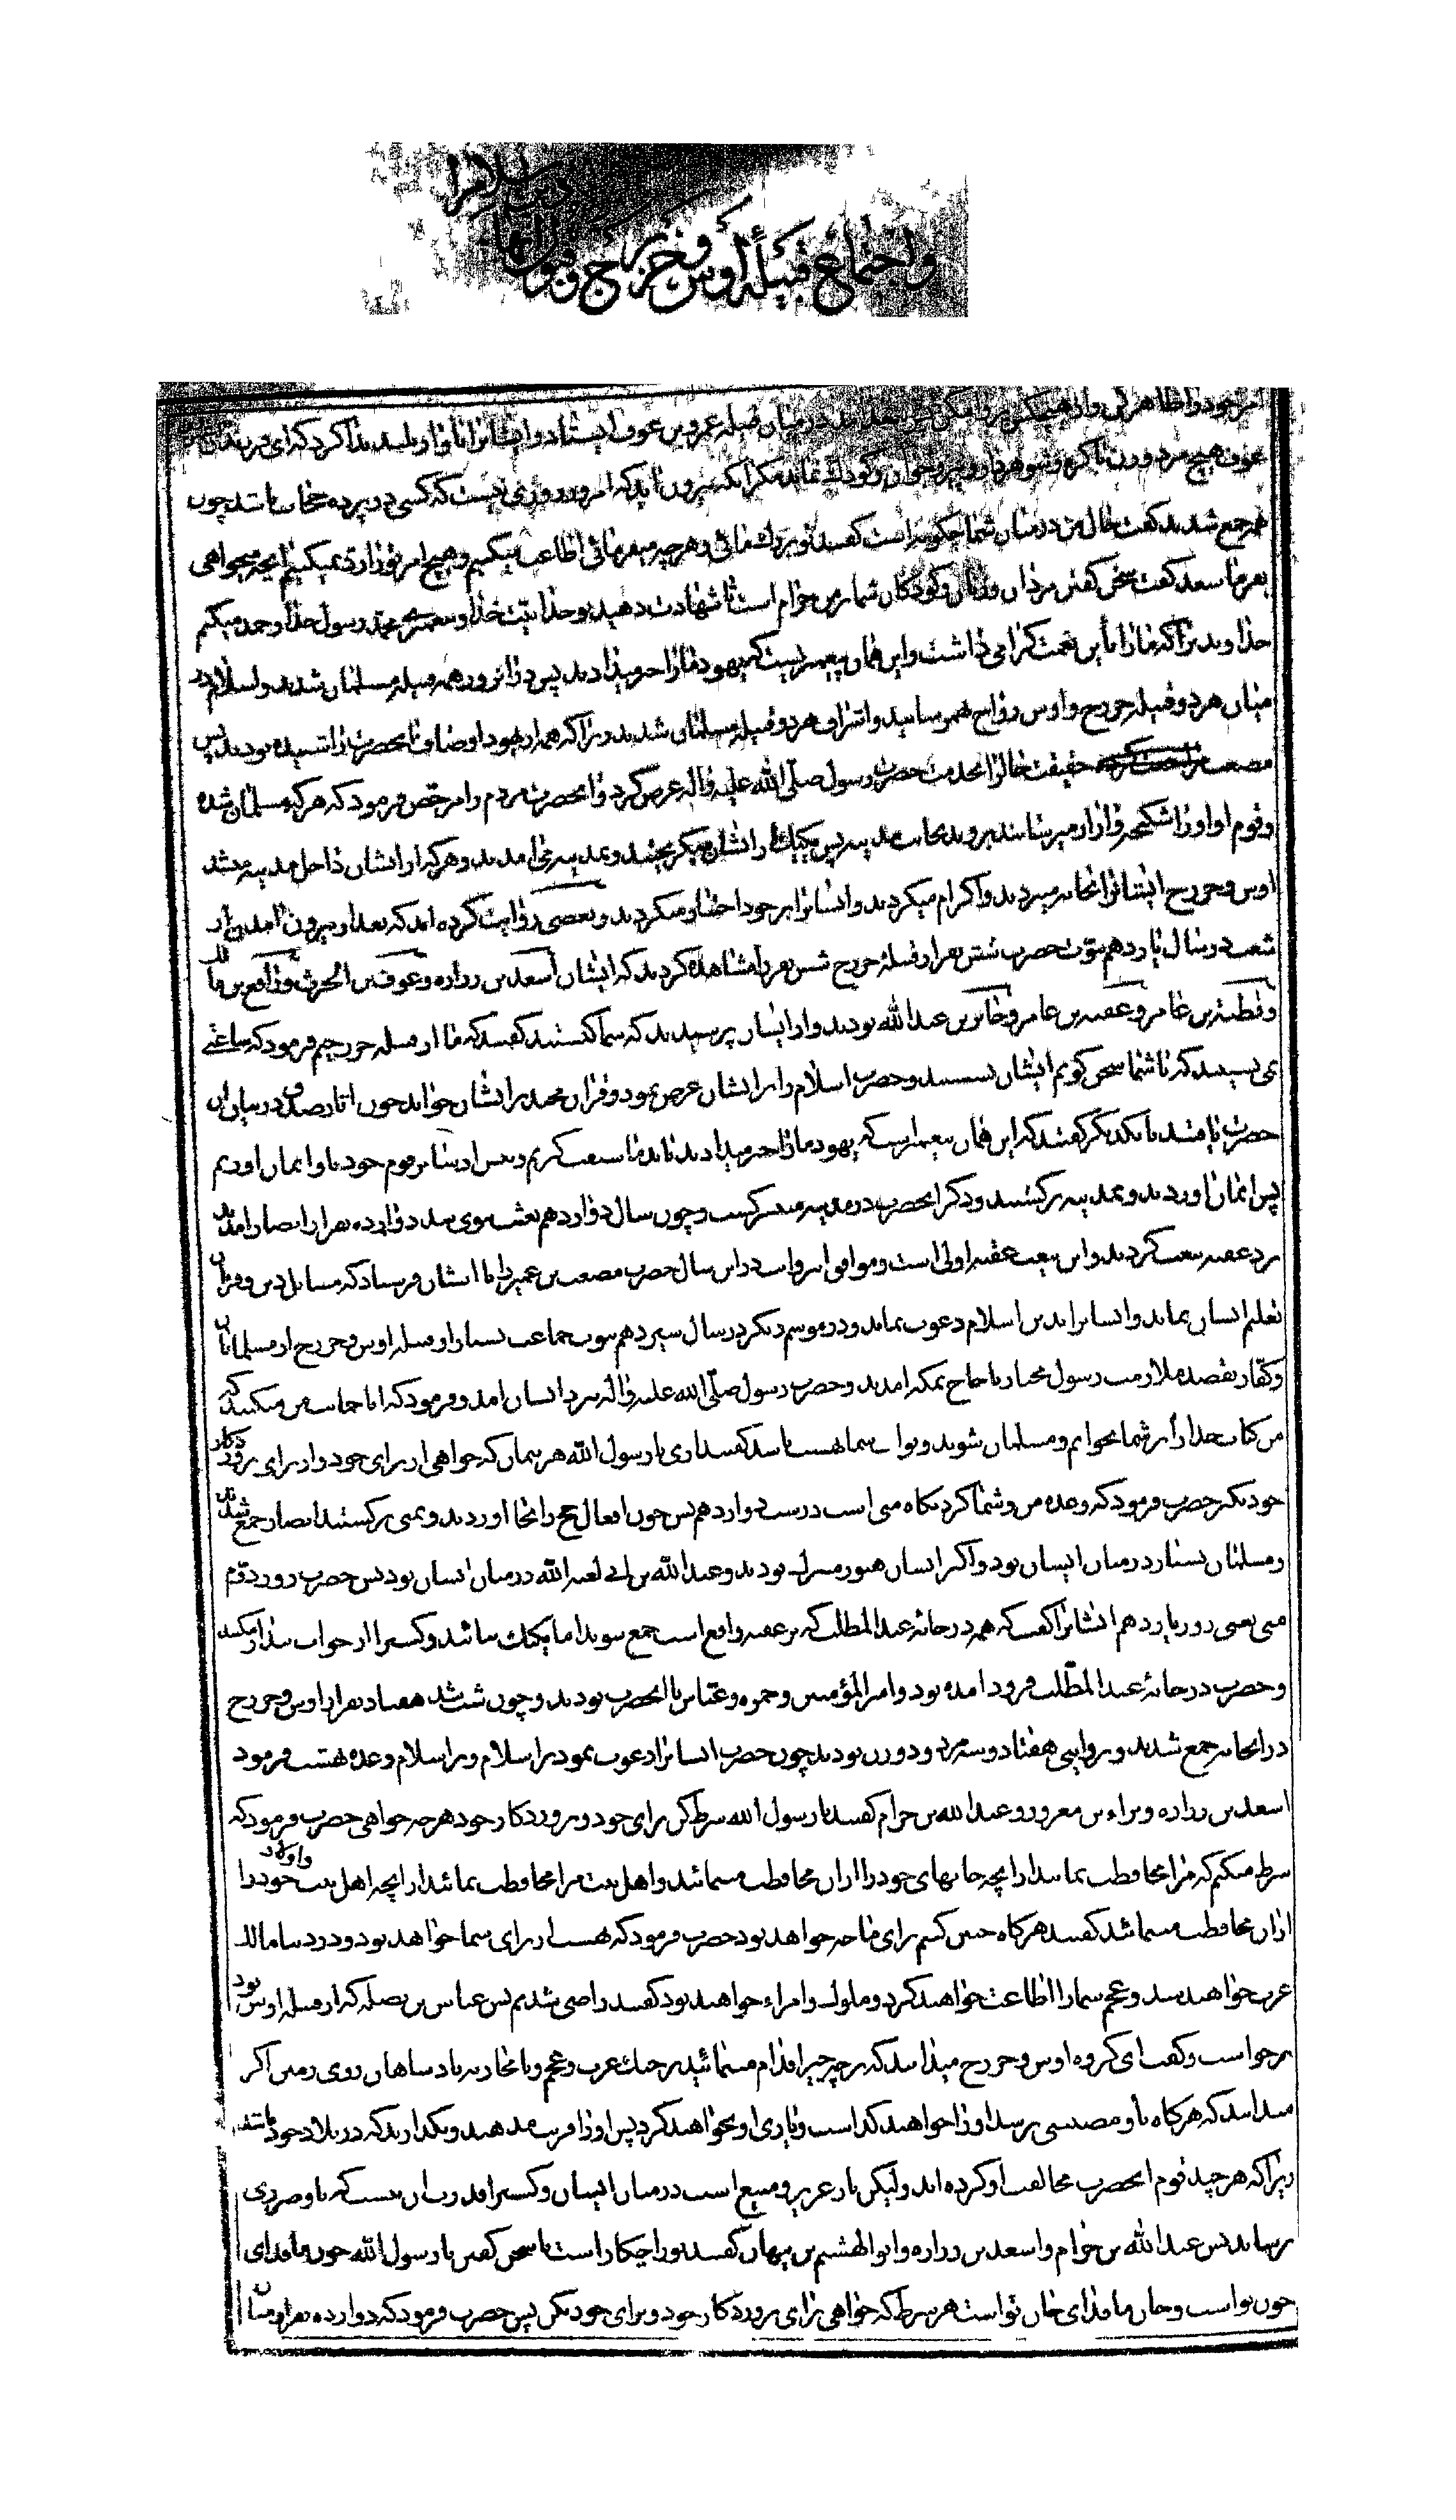 دین اسلام را
واجتماع قبیله اوس وخزرج وقبول انها
امر خود را ظاهر کن واز هیچکس پروا مکن پس سعد در میان قبیله عمرو بن عوف ایستاد و ایشانرا باواز بلند ندا کرد که ای فرزندان
عوف هیچ مرد و زن باکره و شوهردار و پیر و جوان و کودک نماند مگر انکه بیرون آید که امروز روزی نیست که کسی در پرده حجاب باشد چون
همه جمع شدند گفت حال من در میان شما چگونه است گفتند تو بزرك مائی و هر چه میفرمائی اطاعت میکنیم و هیچ امر تو را رد نمیکنیم انچه میخواهی
بفرما سعد گفت سخن گفتن مردان و زنان و کودکان شما بر من حرام است تا شهادت دهید بوحدانیت خدا و محمد رسول خدا و حمد میکنم
خداوندیرا که مارا باین نعمت گرامی داشت و این همان پیغمبریست که یهود مارا خبر میدادند پس در انروز همه قبیله مسلمان شدند و اسلام در
میان هر دو قبیله خزرج و اوس رواج بهم رسانید و اشراف هر دو قبیله مسلمان شدند زیرا که همه از یهود اوصاف انحضرت را شنیده بودند پس
مصعب حقیقت حال را بخدمت حضرت رسول صلّی الله علیه و اله عرض کرد و انحضرت مردم را مرخص فرمود که هر که مسلمان شده
و قوم او اورا شکنجه و ازار میرسانند بروند بجانب مدینه پس یکیك از ایشان میگریختند و بمدینه می امدند و هر که از ایشان داخل مدینه میشد
اوس و خزرج ایشانرا بخانه میبردند و اکرام میکردند و ایشانرا بر خود اختیار میکردند و بعضی روایت کرده اند که بعد از بیرون امدن از
شعب در سال یازدهم نبوّت حضرت شش نفر از قبیله خزرج را مشاهده کردند که ایشان اسعد بن زراره و عوف بن الحرث و رافع بن مالك
و قطبة بن عامر و عقبه بن عامر و جابر بن عبد الله بودند و از ایشان پرسیدند که شما کیستید گفتند که ما از قبیله خزرجیم فرمود که ساعتی
نمی نشینید که با شما سخن گویم ایشان نشستند و حضرت اسلام را بر ایشان عرض نمود و قران مجید بر ایشان خواند چون اثار صدق در بیان ان
حضرت یافتند با یکدیگر گفتند که این همان پیغمبر است که یهود مارا خبر میدادند بیائید تا با او بیعت کنیم و پیش از دیگران قوم خود با او ایمان اوریم
پس ایمان اوردند و بمدینه برگشتند و ذکر انحضرت در مدینه منتشر گشت و چون سال دوازدهم بعثت نبوی شد دوازده نفر از انصار امدند
نزد عقبه بیعت کردند و این بیعت عقبه اولی است و موافق این روایت در این سال حضرت مصعب بن عمیر را با ایشان فرستاد که مسائل دین و قران
تعلیم ایشان نماید و ایشانرا بدین اسلام دعوت نماید و در موسم دیگر در سال سیزدهم نبوّت جماعت بسیار از قبیله اوس و خزرج از مسلمانان
و کفّار بقصد ملازمت رسول مختار با حاجّ بمکه امدند و حضرت رسول صلّی الله علیه و اله نزد ایشان امد و فرمود که ایا حمایت من میکنید که
من کتاب خدا را بر شما بخوانم و مسلمان شوید و ثواب شما بهشت باشد گفتند اری یا رسول الله هر پیمان که خواهی از برای خود و از برای پروردگار
خود بگیر حضرت فرمود که وعده من و شما گردنگاه منی است در شب دوازدهم پس چون افعال حج را بجا اوردند و بمنی برگشتند انصار جمع شدند
و مسلمانان بسیار در میان ایشان بود و اکثر ایشان هنوز مشرك بودند و عبد الله بن ابی در میان ایشان بود پس حضرت در روز دوّم
منی یعنی روز یازدهم ایشانرا گفت که همه در خانه عبد المطلب که بر عقبه واقع است جمع شوید اما یکیك بیائید و کسیرا از خواب بیدار مکنید
و حضرت در خانه عبد المطّلب فرود امده بود و امیر المؤمنین و حمزه و عبّاس با انحضرت بودند و چون شب شد هفتاد نفر از اوس و خزرج
در انخانه جمع شدند و بروایتی هفتاد و سه مرد و دو زن بودند چون حضرت ایشانرا دعوت نمود بر اسلام و بر اسلام وعده بهشت فرمود
اسعد بن زراره و براء بن معرور و عبد الله بن حرام گفتند یا رسول الله شرط کن برای خود و پروردگار خود هر چه خواهی حضرت فرمود که
شرط میکنم که مرا محافظت نمائید از انچه جانهای خود را از ان محافظت مینمائید و اهل بیت مرا محافظت نمائید از انچه اهل بیت و اولاد خود را
از ان محافظت مینمائید گفتند هرگاه چنین کنیم برای ما چه خواهد بود حضرت فرمود که بهشت از برای شما خواهد بود و در دنیا مالك
عرب خواهید شد و عجم شما را اطاعت خواهند کرد و ملوك و امراء خواهید بود گفتند راضی شدیم پس عباس بن نضله که از قبیله اوس بود
برخواست و گفت ای گروه اوس و خزرج میدانید که بر چه چیز اقدام مینمائید بر جنك عرب و عجم و با محاربه پادشاهان روی زمین اگر
میدانید که هرگاه باو مصیبتی برسد اورا خواهید گذاشت و یاری او نخواهید کرد پس اورا فریب مدهید و بگذارید که در بلاد خود باشد
زیرا که هر چند قوم انحضرت مخالفت او کرده اند و لیکن باز عزیز و منیع است در میان ایشان و کسیرا قدرت ان نیست که باو ضرری
رساند پس عبد الله بن حرام و اسعد بن زراره و ابو الهیثم بن تیهان گفتند تورا چکار است با سخن گفتن یا رسول الله خون ما فدای
خون تو است و جان ما فدای جان تو است هر شرط که خواهی برای پروردگار خود و برای خود بکن پس حضرت فرمود که دوازده نفر از میان